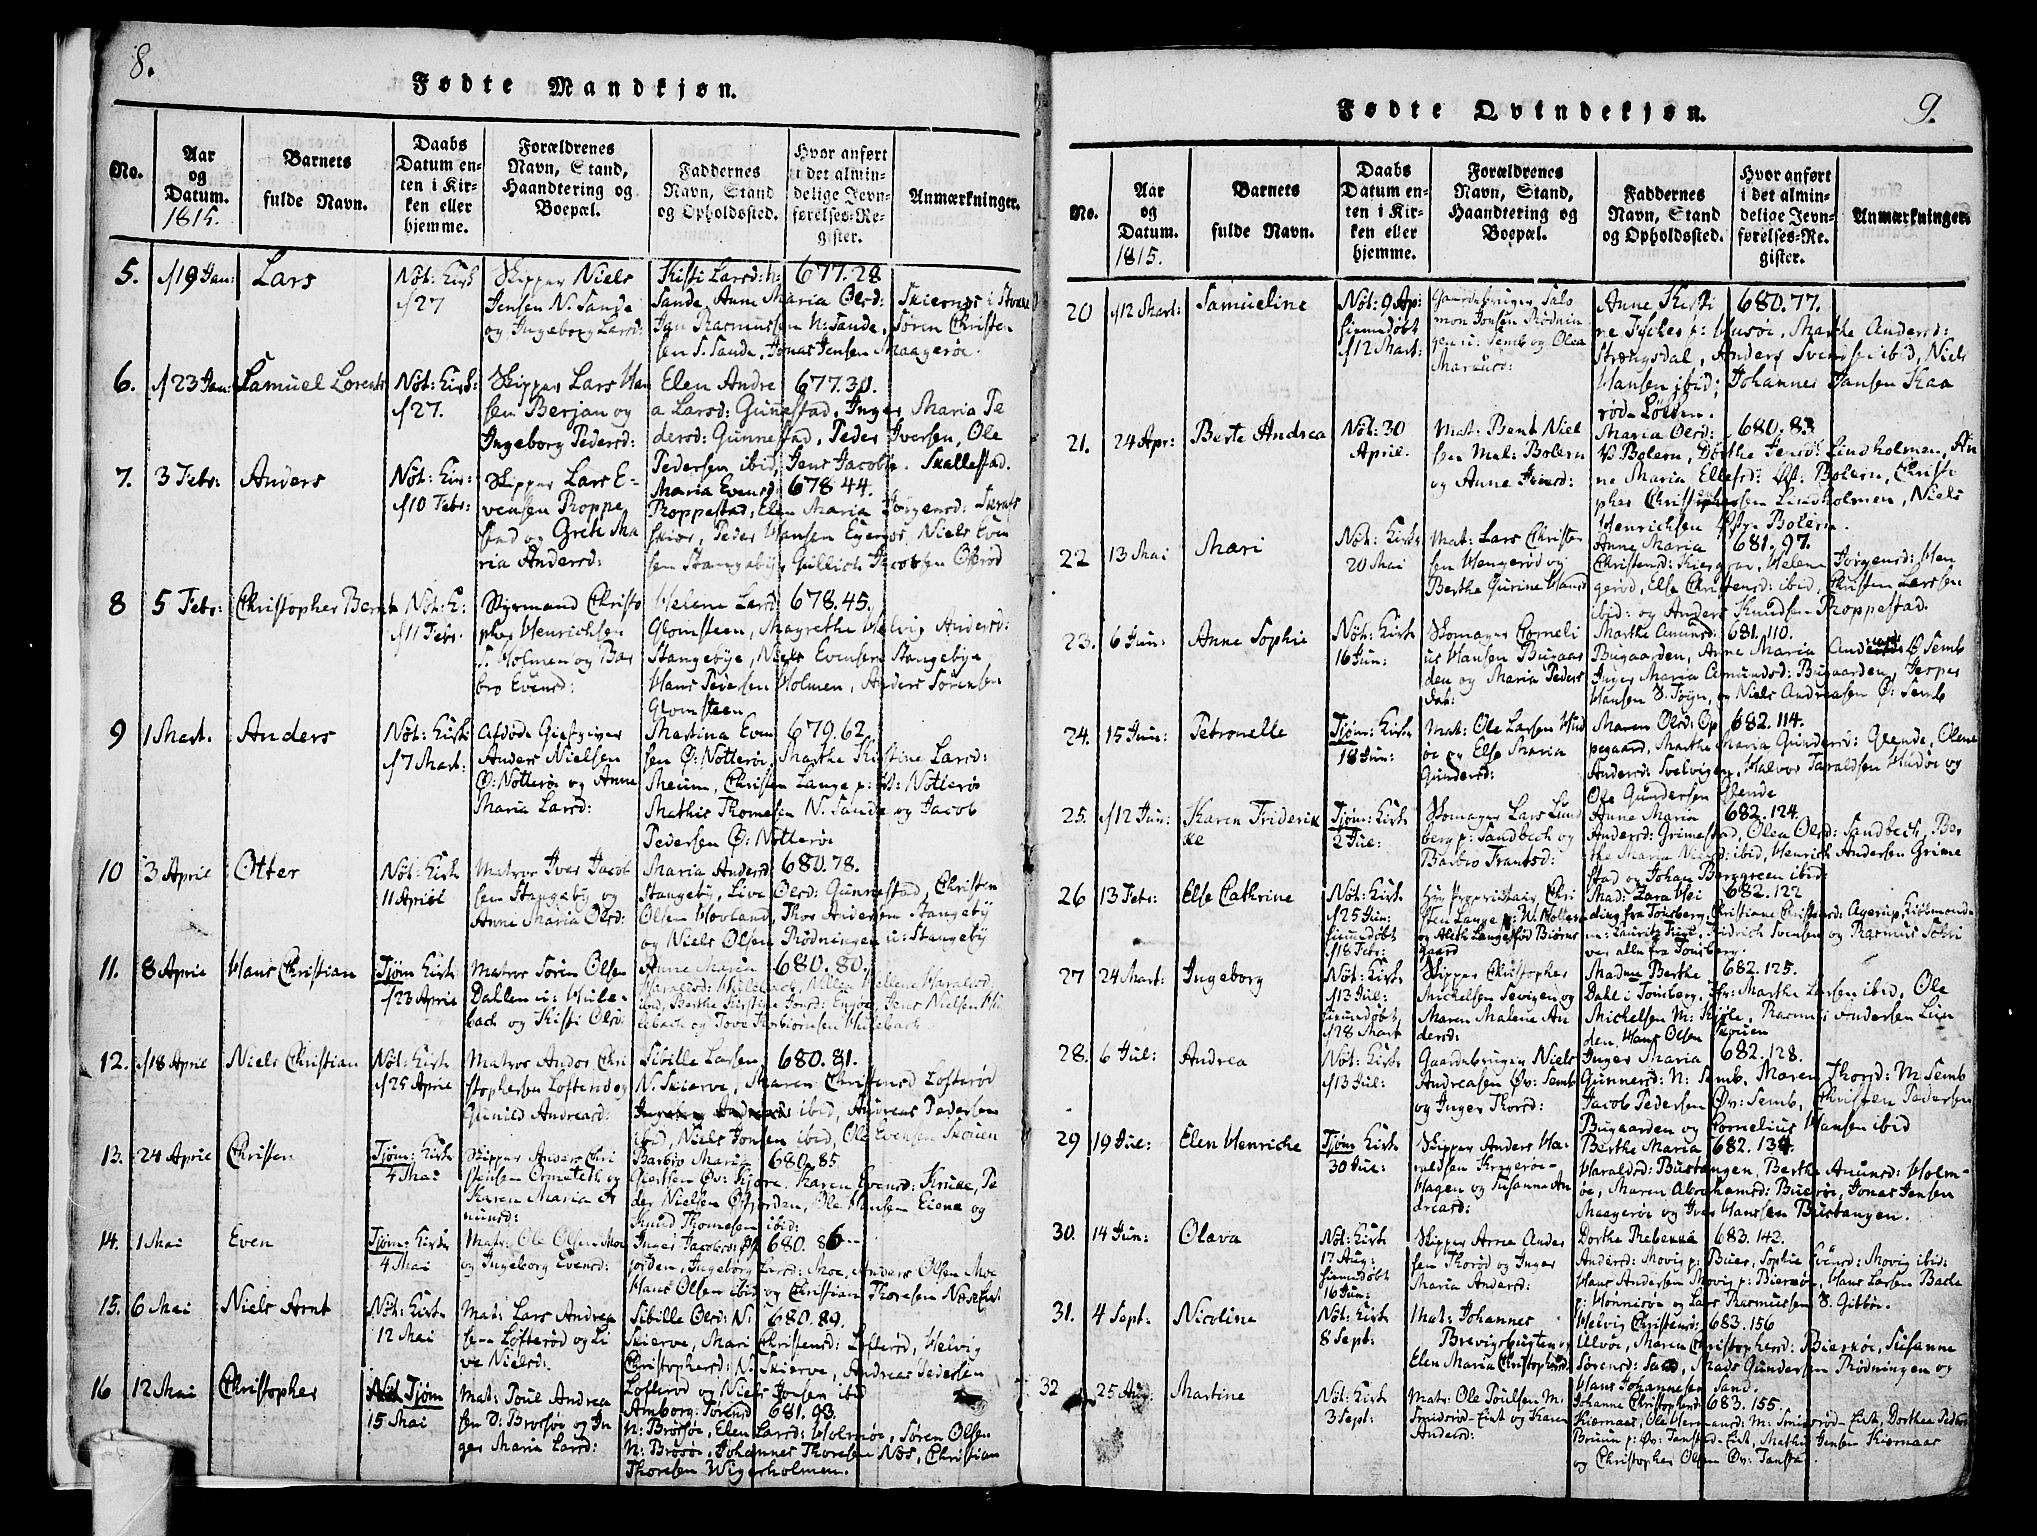 8.
Fødte Mandkjøn.
No.
Aar
og
Datum.
1815.
Barnets
fulde Navn.
Daabs
Datum en-
ten i Kir-
ken eller
hjemme.
Forældrenes
Navn, Stand,
Haandtering og
Boepæl.
Faddernes
Navn, Stand
og Opholdssted.
Hvor anført
i det almin-
delige Jevn-
førelses-Re-
gister.
Anmærkninger.
5.
19 Jan:
Lars
Nöt: Kirk
27
Skipper Niels
Jensen N. Sande
og Ingeborg Larsd:
Kisti Larsd: N: 677.28
Sande, Anne Maria Olsd:
Jan Rasmussen N: Sande, Sören Christen
sen S. Sande, Jonas Jensen Maagerøe.
6.
23 Jan:
Samuel Lorents
Nöt: Kirk:
27.
Skipper Lars Han
sen Berjan og
Ingeborg Pedersd:
Elen Andre 677.30.
a Larsd: Gunnestad, Inger Maria Pe
dersd: Gunnestad, Peder Iversen, Ole
Pedersen ibid, Jens Jacobs. Skallestad.
7.
3 Febr:
Anders
Nöt: Kir:
10 Febr:
Skipper Lars E-
vensen Roppe
stad og Grete Ma
ria Andersd:
Maria Evensd: 678 44.
Roppestad, Elen Maria Jörgensd:
Peder Hansen Egenes, Niels Even
sen Stangebÿe, Gullich Jacobsen Oterød
8
5 Febr:
Christopher Bernt
Nöt: K:
11 Febr:
Styrmand Christo
pher Henrichsen
S. Holmen og Bar
bro Evensd:
Helene Larsd: 678.45.
Glomsteen, Magrethe Helvig Andersd:
Stangebÿe, Niels Evensen Stangebÿe
Hans Pedersen Holmen, Anders Sörensen
Glomsteen
9
1 Mart.
Anders
Nöt: Kirk
7 Mart:
Afdøde Giestgiver
Anders Nielsen
Ö: Nötterøe og Anne
Maria Larsd:
Martina Even 679.62.
sen Ö: Nötterøe, Marthe Kistine Larsd:
Meum, Christen Lange p: V: Nötterøe
Mathis Thomesen N. Sande og Jacob
Pedersen Ö: Nötterøe
10
3 Aprie
Otter
Nöt: Kirk
11 April
Matros Iver Jacob
sen Stangeby og
Anne Maria Olsd:
Maria Andersd: 680.78.
Stangeby, Live Olsd: Gunnestad, Christen
Olsen Hovland, Thor Andersen Stangebÿ
og Niels Olsen Rødningen u: Stangebÿ
11.
8 Aprie
Hans Christian
Tjöm: Kirk
23 Aprie
Matros Sören Olsen
Dahlen u: Hvile-
bach og Kisti Olsd:
Anne Maren 680.80.
Haralsd: Hvilebach, Helene Haralsd
ibid, Berthe Kirstine Jonsd: Engøe, Jens Nielsen Hvi
lebach og Tove Torbiörnsen Hvilebach
12.
18 Aprie
Niels Christian
Nöt: Kirk
25 Aprie
Matros Andor Chri
stophersen Løfterød og
Gunild Andreasd:
Siville Larsen 680.81.
N. Skierve, Maren Christensd Løfterød
Ingeborg Andreasd: ibid, Andreas Pedersen
ibid, Niels Jonsen ibid, Ole Evensen Skouen
13.
24 Aprie
Christen
Tjöm: Kirk
4 Mai
Skipper Anders Chri
stensen Ormeleth og
Karen Maria A
munsd:
Barbro Marie 680.85.
Giertsen Öv: Kjøre, Karen Evensd: Kruke, Pe
der Nielsen Østjorden, Ole Hansen Eiene og
Knud Thomesen ibid:
14.
1 Mai
Even
Tjöm: Kirk
4 Mai
Matr: Ole Olsen Moe
og Ingeborg Evensd:
Inger Jacobsd: Øst 680.86.
jorden, Ingeborg Larsd: Moe, Anders Olsen Moe
Hans Olsen ibid og Christian Thoresen Nöss
15.
6 Mai
Niels Arnt
Nöt: Kirk
12 Mai
Mat: Lars Andrea
sen Løfterød og Li
ve Nielsd:
Sibille Olsd: N. 680.89.
Skierve, Mari Christensd: Løfterød, Helvig
Christophersd: N. Skierve, Andreas Pedersen
Løfterød og Niels Jonsen ibid
16
12 Mai
Christopher
Nöt Tjöm
15 Mai
Mat: Poul Andrea
sen V: Brøtsøe og In
ger Maria Larsd:
Amborg Sørensd 681.93.
N: Brøtsøe, Elen Larsd: Holmøe, Sören Olsen
N: Brøtsøe, Johannes Thoresen Nös, Christian
Thoresen Wigerholmen.
9.
Fødte Qvindekjøn.
No.
Aar
og
Datum.
1815.
Barnets
fulde Navn.
Daabs
Datum en-
ten i Kir-
ken eller
hjemme.
Forældrenes
Navn, Stand,
Haandtering og
Boepæl.
Faddernes
Navn, Stand
og Opholdssted.
Hvor anført
i det almin-
delige Jevn-
førelses-Re-
gister.
Anmærkninger.
20
12 Mart:
Samueline
Nöt: 9 Ap:
hiemdöbt
12 Mart:
Gaardebruger Salo
mon Jonsen Rødnin
gen u: Semb og Olea
Markusd:
Anne Kisti 680.77.
ne Fischer p: Husøe, Marthe Andersd:
Strengsdal, Anders Svendsen ibid, Niels
Hansen ibid; Johannes Hansen Kaa
röd Løkken.
21.
24 Apr:
Berte Andrea
Nöt: 30
April.
Mat: Bent Niel
sen Mel: Bolern
og Anne Iversd:
Maria Olsd: 680.83
V Bolern, Dorthe Jensd: Lindholmen, An
ne Maria Ellefsd: Øst: Bolern, Christo
pher Christophersen Lindholmen, Niels
Henrichsen Øst: Bolern.
22
13 Mai
Mari
Nöt: Kirk
20 Mai
Mat: Lars Christen
sen Hengerød og
Berthe Gurine Hansd
Anne Maria 681.97.
Christensd: Kiergrav, Helene Jörgensd: Hen
gerød, Else Christensd: ibid, Christen Larssen
ibid: og Anders Knudsen Roppestad.
23.
6 Jun:
Anne Sophie
Nöt: Kirk
16 Jun:
Skomager Corneli
us Hansen Bugaar
den og Maria Peders
dat:
Marthe Amunsd: 681.110.
Bugaarden, Anne Maria Andersd: Ö Semb
Inger Maria Amundsd: Bugaarden, Jesper
Hansen S. Foÿn, og Niels Andreasen Ö: Semb
24.
15 Jun:
Petronelle
Tjöm: Kirk
18 Jun:
Mat: Ole Larsen Hud
öe og Else Maria
Gundersd:
Maren Olsd: Op 682.114.
pegaard, Marthe Maria Gundersd: Glende, Olene
Andersd: Svelvigen, Halvor Taraldsen Hudøe og
Ole Gundersen Glende
25.
12 Jun:
Karen Friderik
ke
Tjöm: Kirk
2 Jul:
Skomager Lars Lund
berg p: Sandbech og
Barbro Frantsd:
Anne Maria 682.124.
Andersd: Grimestad, Olea Olsd: Sandbech, Ber
the Maria Nielsd: ibid, Henrich Andersen Grime
stad og Johan Berggreen ibid:
26
13 Febr:
Else Cathrine
Nöt: Kirk
25 Jun:
hiemdöbt
18 Febr:
Hr: Proprietair Chri
sten Lange p: W: Nötterø
og Aleth Lange fød Biørns
gaard
Mad: Zara Hei 682.122
ding fra Tønsberg, Christiane Christensd: Agerup, Kiöbmænde
ne: Lauritz Fiist, Fridrich Svensen og Rasmus Schri
ver alle fra Tønsberg.
27
24 Mart:
Ingeborg
Nöt: Kirk
13 Jul:
hiemdöbt
28 Mart
Skipper Christopher
Michelsen Sevigen og
Maren Malene An
dersd:
Madme Berthe 682.125.
Dahl i Tønsberg, Jfr: Marthe Larsen ibid, Ole
Michelsen M: Kiøle, Rasmus Andersen Lien
den. Hans Olsen Skouen
28.
6 Jul:
Andrea
Nöt: Kirk
13 Jul:
Gaardebruger Niels
Andreasen Öv: Semb
og Inger Thorsd:
Inger Maria 682.128.
Gunnersd: N: Semb, Maren Thorsd: M Semb
Jacob Pedersen Öv: Semb, Christen Pedersen
Bugaarden og Cornelius Hansen ibid
29
19 Jul:
Elen Henricke
Tjöm Kirk
30 Jul:
Skipper Anders Ha-
raldsen Kragerøe-
Hagen og Susanne An
dreasd:
Berthe Maria 682.134.
Haraldsd: Bustangen, Berthe Anunsd: Holm-
öe, Maren Abrahamsd: Buerøe, Jonas Jensen
Maagerøe og Iver Hanssen Bustangen.
30.
14 Jun:
Olava
Nöt: Kirk
17 Aug:
hiemdöbt
16 Jun:
Skipper Arne Ander
sen Thorød og Inger
Maria Andersd:
Dorthe Rebenna 683.142.
Andersd: Movig p: Buer, Sophie Evensd: Movig ibid:
Hans Andersen Movig p: Bierkøe, Hans Larsen Bache
p: Hönnisøe og Lars Rasmussen S. Gibbøe.
31.
4 Sept:
Nicoline
Nöt: Kirk
8 Sept:
Mat: Johannes
Brevigsbugten og
Elen Maria Christophersd:
Helvig Christensd: 683.156
Ulvøe, Maren Christophersd: Bierkøe, Susanne
Sörensd: Sand, Mads Gundersen Rødningen og
Hans Johannesen Sand.
32
25 Aug:
Martine
Nöt: Kirk
3 Sept:
Matr: Ole Poulsen M:
Smidsrød-Eiet og Karen
Andersd:
Johanne Christophersd: 683.155.
Kiernaas, Ole Hermansd: M: Smidsrød-Eiet, Dorthea Peders
Bruun p: Öv: Tanstad-Eiet, Mathis Jensen Kiernaas
og Christopher Olsen Öv: Tansta.